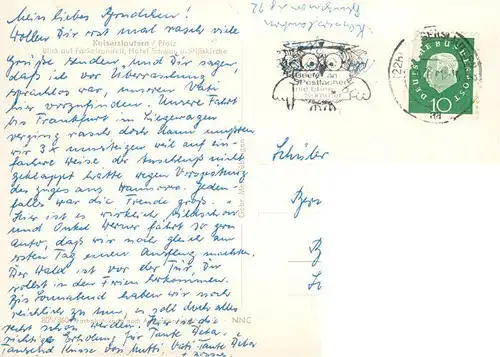 Mein liebes Brüderchen!
Wollen Dir erst mal rasch viele
Kaiserslautern / Pfalz
Blick auf Fackelrondell, Hotel Schwan u. Stiftskirche
Grüße senden und Dir sagen,
daß ich vor Überraschung
sprachlos war, unseren Vati
hier vorzufinden. Unsere Fahrt
bis Frankfurt im Liegewagen
verging rasch doch dann mußten
wir 3x umsteigen weil auf ein-
fachere Weise der Anschluß nicht
geklappt hatte wegen Verspätung
des Zuges aus Hannover. Jeden-
falls war die Freude groß.
Hier ist es wirklich bildschön
und Onkel Werner fährt so gern
Auto, daß wir noch gleich am
ersten Tag einen Ausflug machten.
Der Wald ist vor der Tür, Du
sollst in den Ferien herkommen.
Bis Sonnabend haben wir noch
reichlich zu tun, es soll doch alles
recht schön werden. Hier ist die
richtige Erholung für Tante
Tausend Küsse von Mutti, Vati Tante
805/360
NNC
Kaiserslautern
Briefe an
Postfächer
DEUTSCHE BUNDESPOST
10
Schüler
Ber